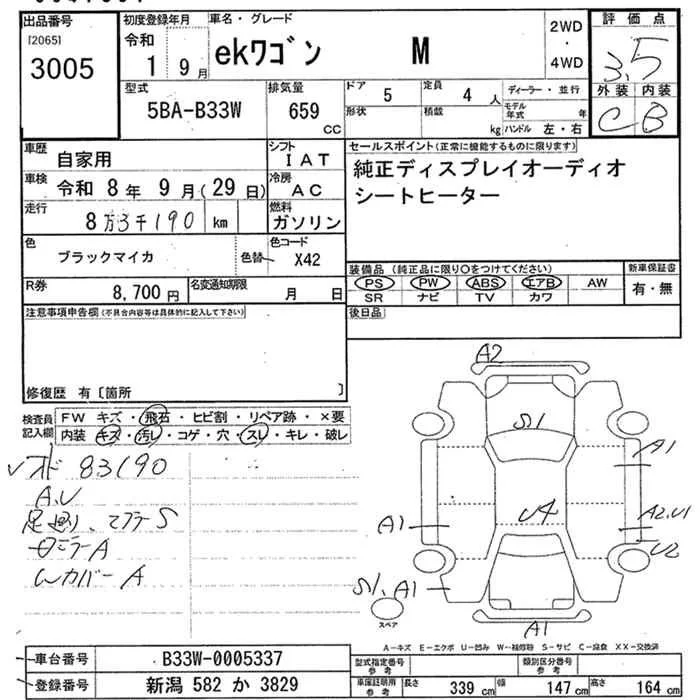 出品番号 初度登録年月 車名・グレード 2WD・4WD 評価点
[2065] 3005 令和 1 9月 ekワゴン M 3.5
型式 排気量 ドア 5 定員 4人 ディーラー・並行 外装 内装
5BA-B33W 659 CC 形状 積載 kg モデル年式 年 ハンドル 左・右 C B
車歴 自家用 シフト IAT セールスポイント(正常に機能するものに限ります)
車検 令和 8年 9月(29日) 冷房 AC 純正ディスプレイオーディオ
走行 8万3千190 km 燃料 ガソリン シートヒーター
色 ブラックマイカ 色替 色コード X42
装備品(純正品に限り○をつけてください) 新車保証書
PS PW ABS エアB AW 有・無
R券 8,700円 名変通知期限 月 日 SR ナビ TV カワ
注意事項申告欄(不具合内容等は具体的に記入して下さい) 後日品
修復歴 有〔箇所 〕
検査員記入欄 FW キズ・飛石・ヒビ割・リペア跡・×要
内装 キズ・汚レ・コゲ・穴・スレ・キレ・破レ
83190
A.U
足廻り、マフラーS
ミラーA
Wカバー A
A2
S1
A1
A2.U1
U4
A1
U2
S1, A1
スペア
A1
A-キズ E-エクボ U-凹み W-補修跡 S-サビ C-腐食 XX-交換済
車台番号 B33W-0005337 型式指定番号 参考 類別区分番号 参考
登録番号 新潟 582 か 3829 車庫証明用 参考 長さ 339 cm 幅 147 cm 高さ 164 cm